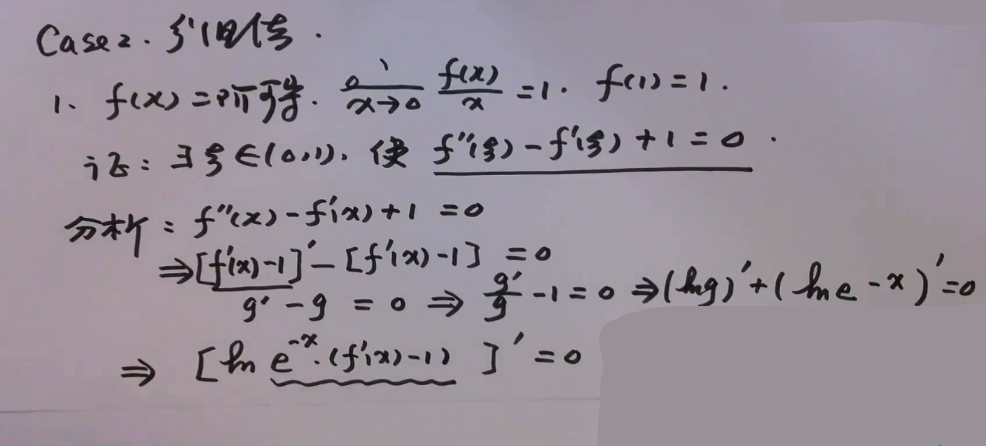 Case 2. 多个中值.
1. f(x)二阶可导. lim x→0 f(x)/x = 1. f(1) = 1.
证: ∃ξ∈(0,1), 使 f''(ξ) - f'(ξ) + 1 = 0.
分析: f''(x) - f'(x) + 1 = 0
⇒ [f'(x)-1]' - [f'(x)-1] = 0
g' - g = 0 ⇒ g'/g - 1 = 0 ⇒ (ln g)' + (ln e^-x)' = 0
⇒ [ln e^-x · (f'(x)-1)]' = 0